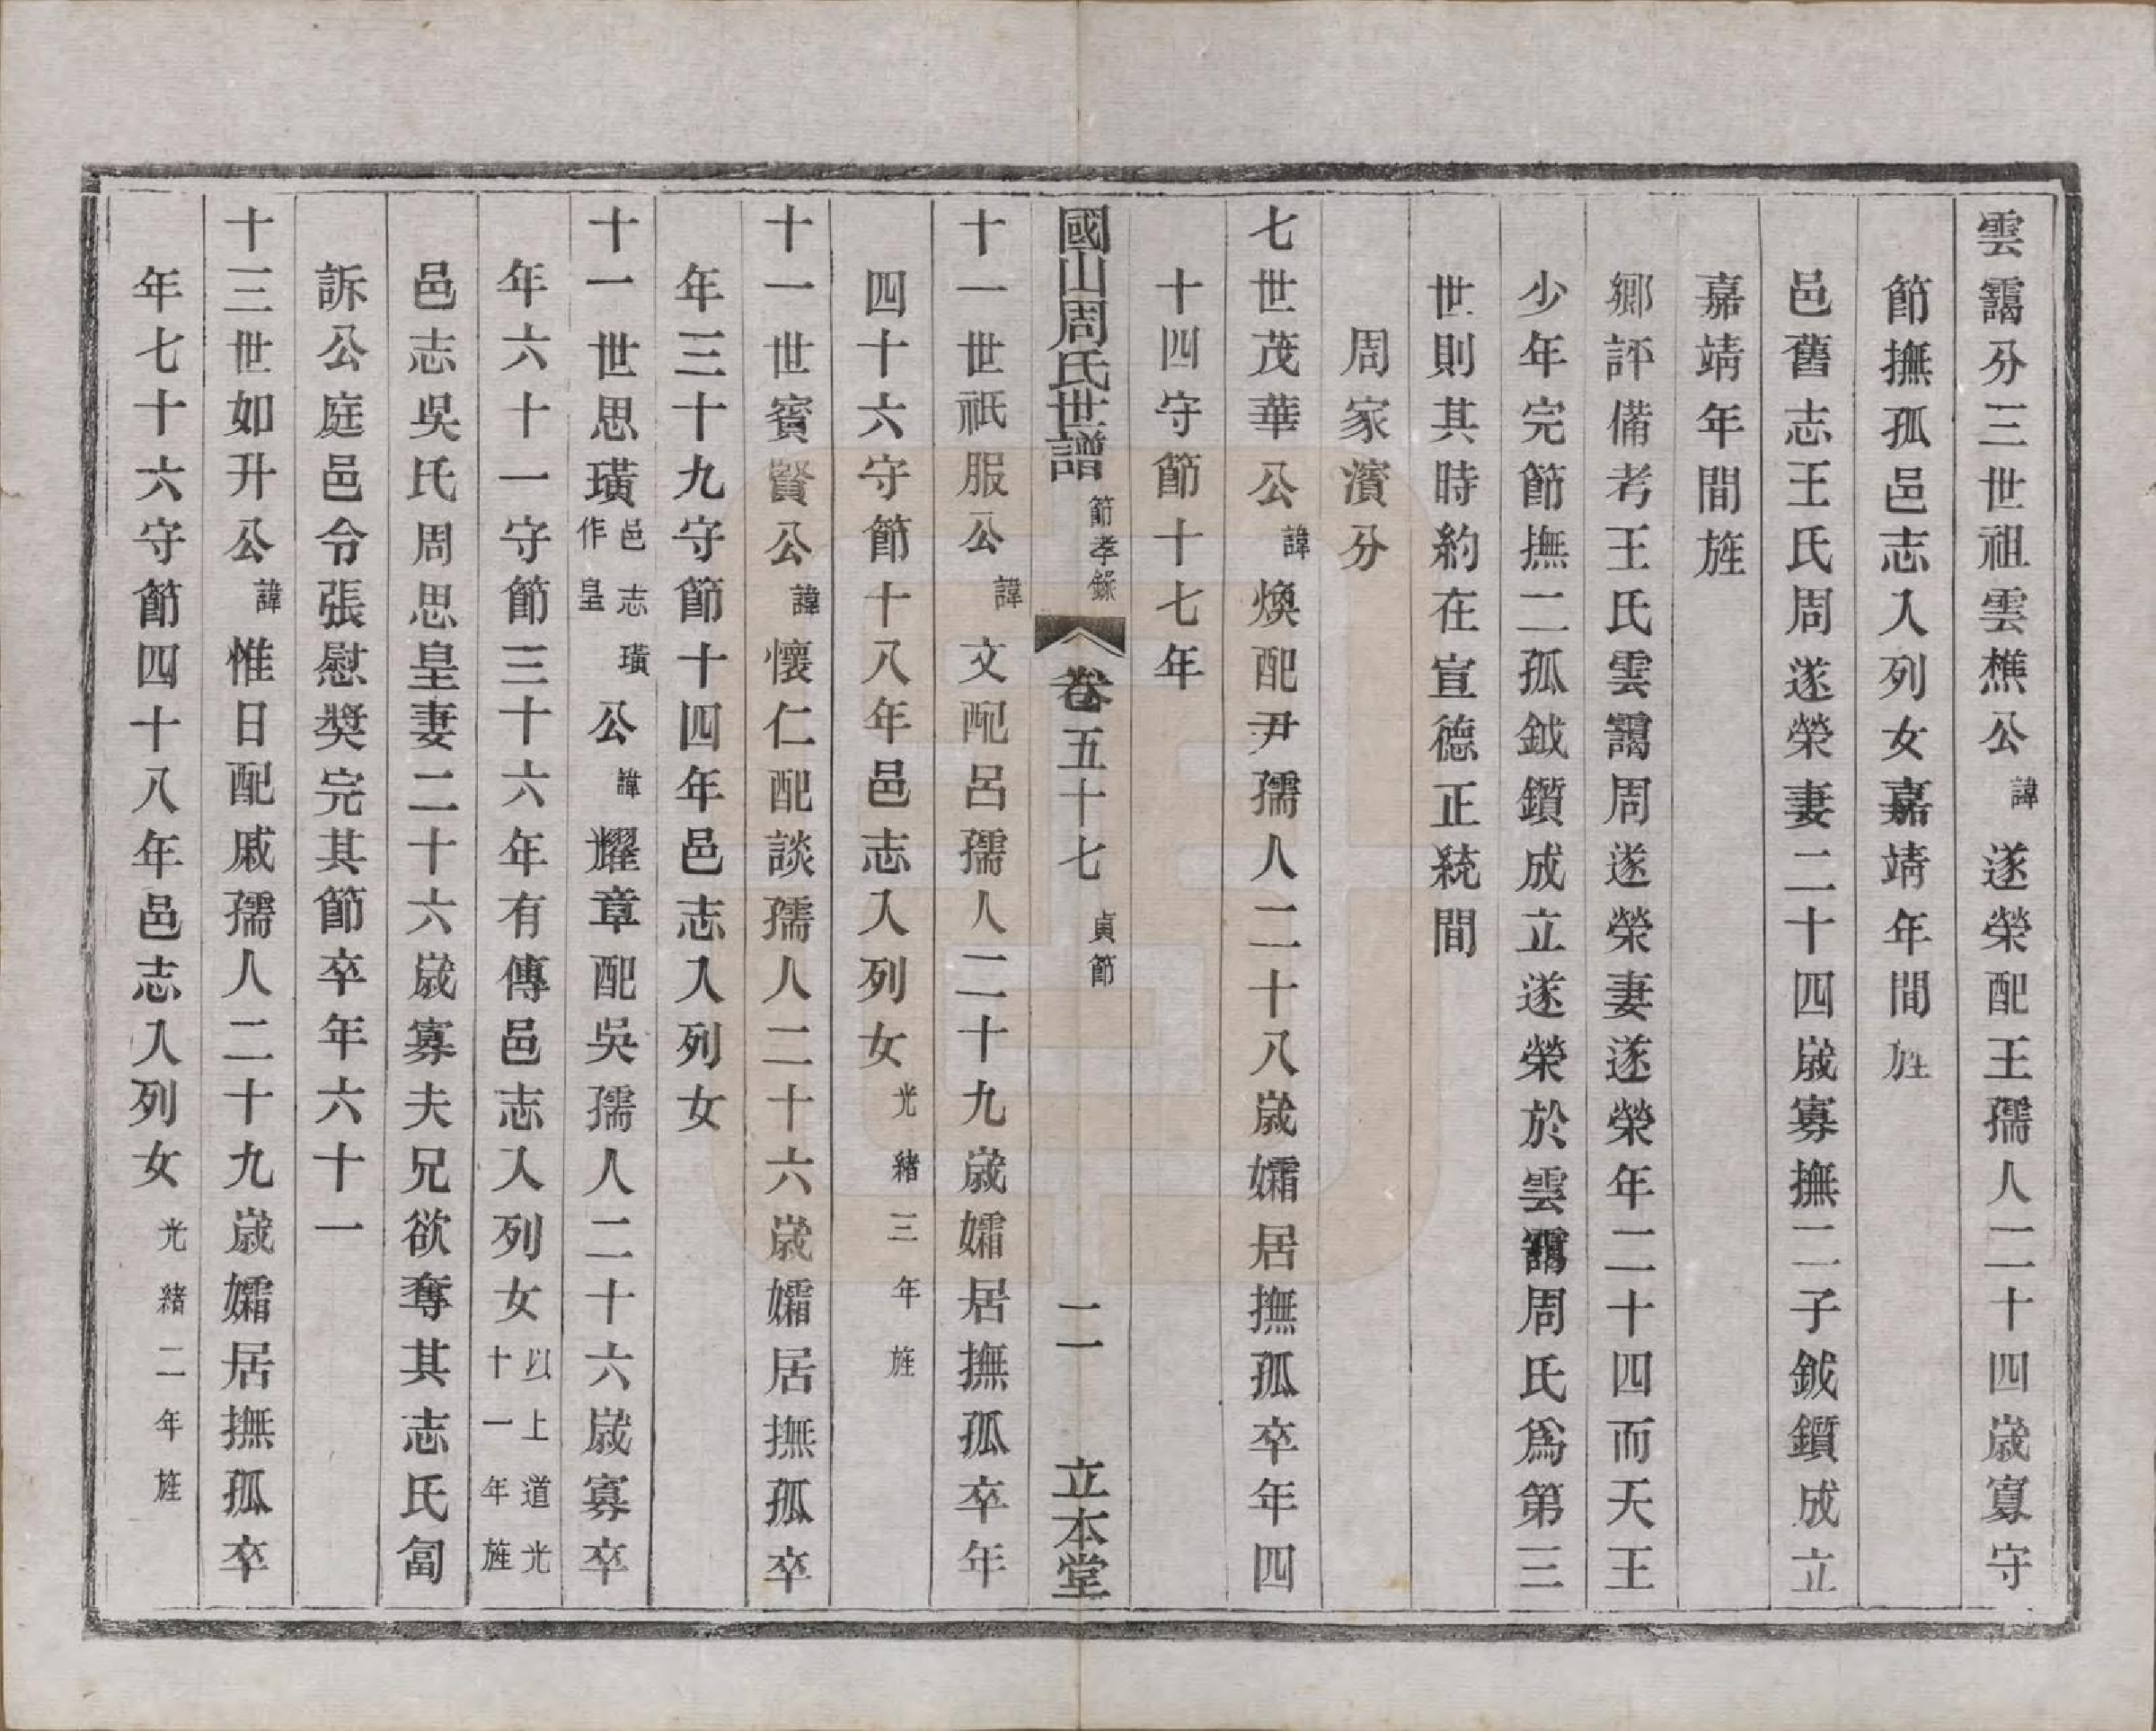 雲靄分三世祖雲樵公諱遂榮配王孺人二十四歲寡守
節撫孤邑志入列女嘉靖年間旌
邑舊志王氏周遂榮妻二十四歲寡撫二子鉞鑕成立
嘉靖年間旌
鄉評備考王氏雲靄周遂榮妻遂榮年二十四而夭王
少年完節撫二孤鉞鑕成立遂榮於雲靄周氏爲第三
世則其時約在宣德正統間
周家濱分
七世茂華公諱煥配尹孺人二十八歲孀居撫孤卒年四
十四守節十七年
國山周氏世譜 節孝錄 卷五十七 貞節 二 立本堂
十一世祇服公諱文配呂孺人二十九歲孀居撫孤卒年
四十六守節十八年邑志入列女光緒三年旌
十一世賓賢公諱懷仁配談孺人二十六歲孀居撫孤卒
年三十九守節十四年邑志入列女
十一世思璜邑志璜作皇公諱耀章配吳孺人二十六歲寡卒
年六十一守節三十六年有傳邑志入列女以上道光十一年旌
邑志吳氏周思皇妻二十六歲寡夫兄欲奪其志氏匐
訴公庭邑令張慰獎完其節卒年六十一
十三世如升公諱惟日配戚孺人二十九歲孀居撫孤卒
年七十六守節四十八年邑志入列女光緒二年旌